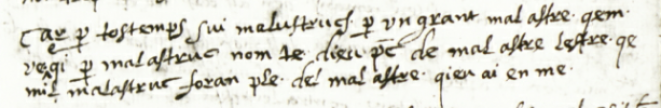 Car p tostemps sui malastrucs p un grant mal astre. qem.
ve. qi p malastruc nom te. dieu pe de mal astre lestre. qe
mil malastruc foran ple. del mal astre. qieu ai en me.